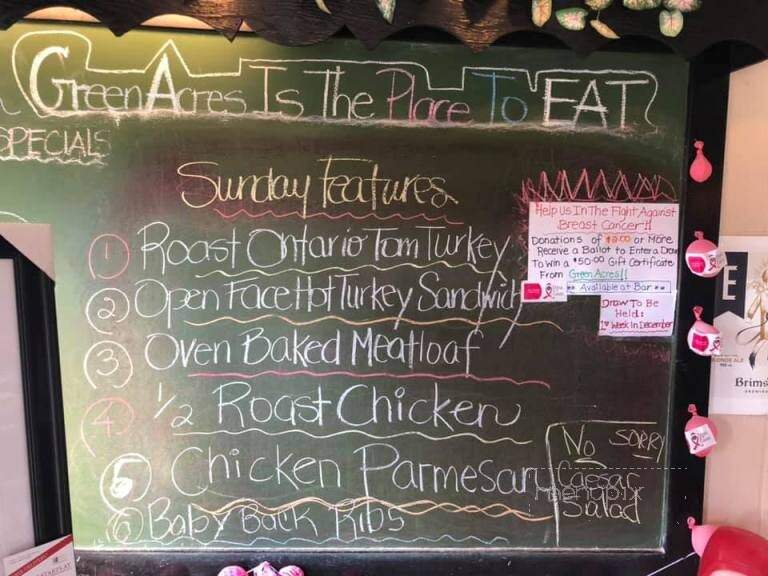 GreenAcres Is The Place To EAT
SPECIALS
Sunday Features
1 Roast Ontario Tom Turkey
2 Open Face Hot Turkey Sandwich
3 Oven Baked Meatloaf
4 1/2 Roast Chicken
5 Chicken Parmesan
6 Baby Back Ribs
Help Us In The Fight Against
Breast Cancer!!
Donations of $2.00 or More
Receive a Ballot to Enter a Draw
To Win a $50.00 Gift Certificate
From Green Acres!!
** Available at Bar **
Draw To Be
Held:
1st Week In December
No SORRY
Caesar
Salad
menupix
E
Brims